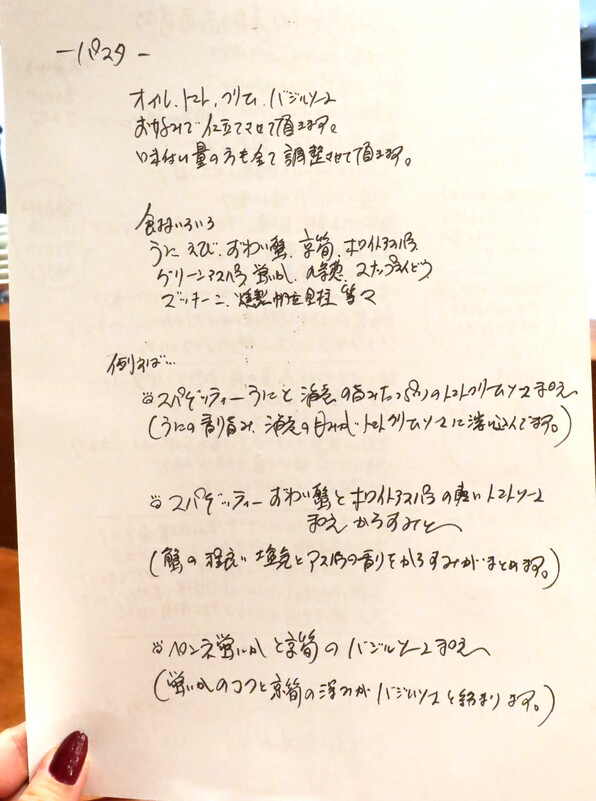 －パスタ－
オイル、トマト、クリーム、バジルソース
お好みで仕立てさせて頂きます。
味わい量の方も全て調整させて頂きます。
食材いろいろ
うに えび、ずわい蟹、京筍、ホワイトアスパラ
グリーンアスパラ、蛍いか、スナップエンドウ
ズッキーニ、燻製 等々
例えば…
スパゲッティーうにと海老の旨みたっぷりのトマトクリームソース和え
(うにの香り旨み、海老の甘みがトマトクリームソースに溶け込んでます。)
スパゲッティーずわい蟹とホワイトアスパラの軽いトマトソース
和え からすみと
(蟹の程良い塩気とアスパラの香りをからすみがまとめます。)
ペンネ蛍いかと京筍のバジルソース和え
(蛍いかのコクと京筍の深みがバジルソースと絡まります。)